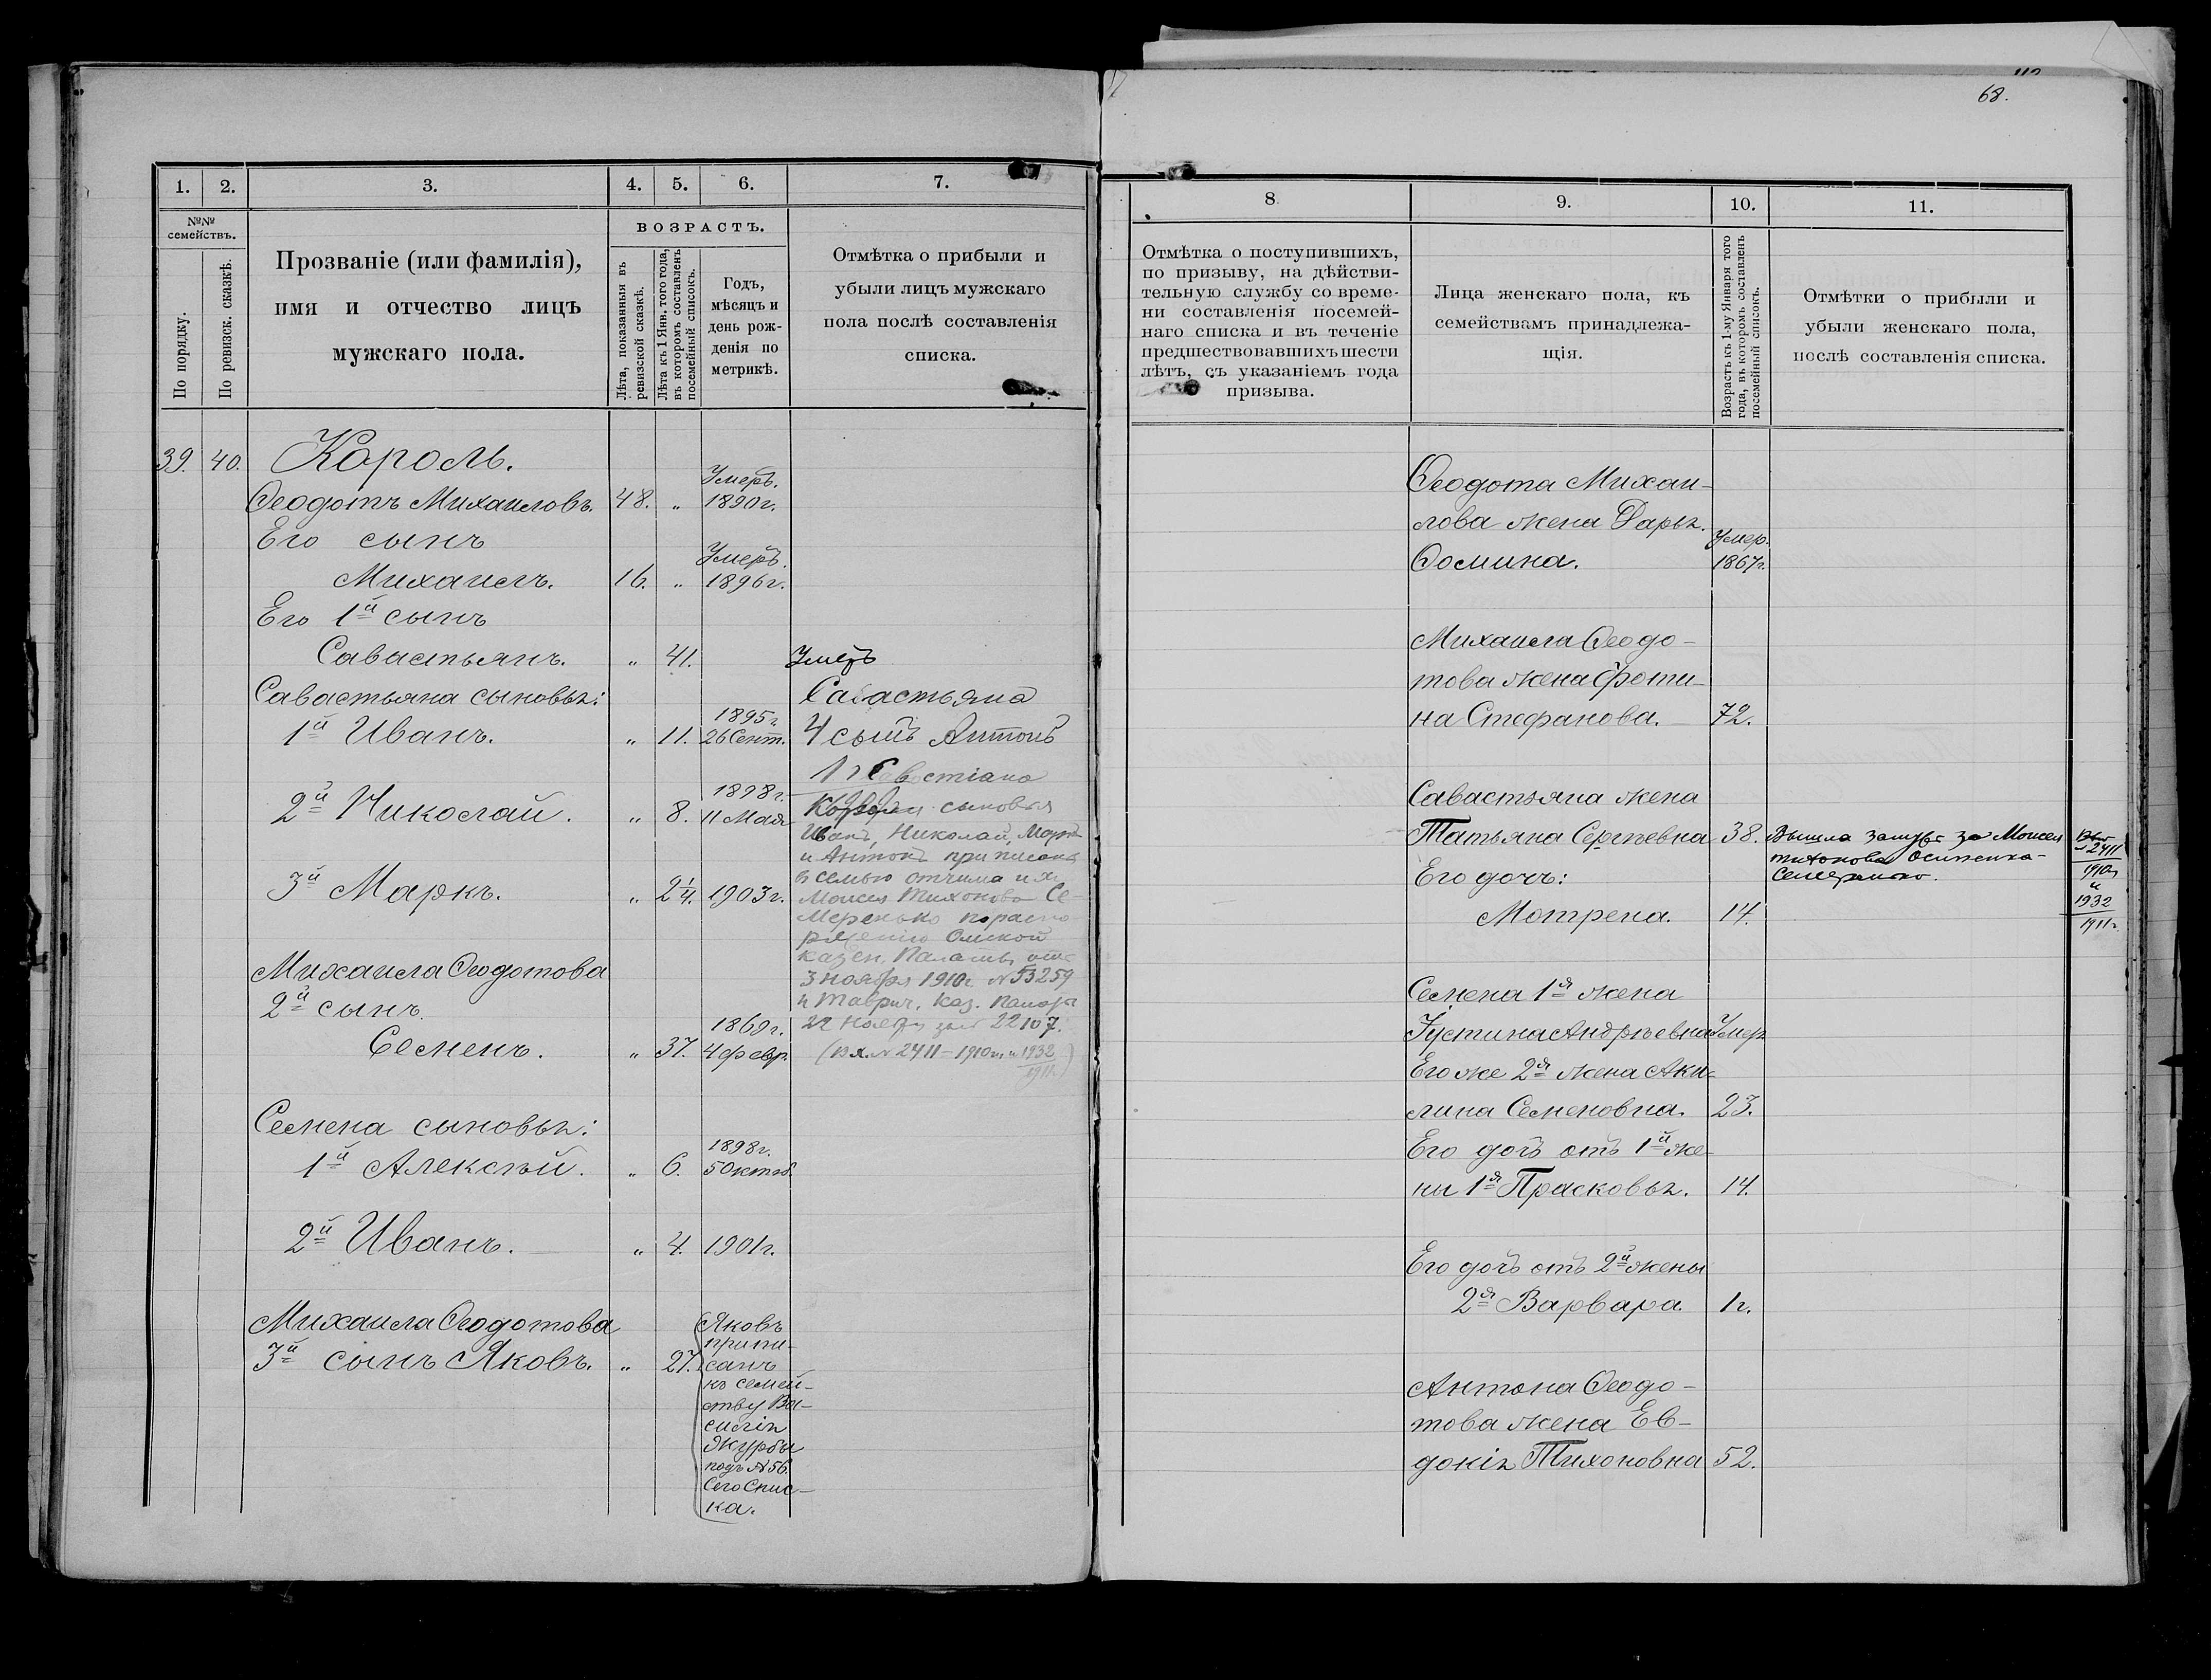 68.
1. 2. 3. 4. 5. 6. 7.
№№ семействъ.
По порядку.
По ревизск. сказкѣ.
Прозваніе (или фамилія),
имя и отчество лицъ
мужскаго пола.
ВОЗРАСТЪ.
Лѣта, показанныя въ
ревизской сказкѣ.
Лѣта къ 1 Янв. того года,
въ которомъ составленъ
посемейный списокъ.
Годъ,
мѣсяцъ и
день рож-
денія по
метрикѣ.
Отмѣтка о прибыли и
убыли лицъ мужскаго
пола послѣ составленія
списка.
39. 40. Король.
Умеръ.
Ѳеодотъ Михаиловъ. 48. „ 1890 г.
Его сынъ
Умеръ.
Михаилъ. 16. „ 1896 г.
Его 1й сынъ
Савастьянъ. „ 41. Умеръ
Савастьяна сыновья: Савастьяна
1895 г.
1й Иванъ. „ 11. 26 Сент. 4 сынъ Антонъ
1898 г.
2й Николай. „ 8. 11 Мая
3й Маркъ. „ 2¼. 1903 г.
сыновья
Иванъ, Николай, Маркъ
и Антонъ приписаны
въ семью отчима ихъ
Моисея Тихонова Се-
меренько по распо-
ряженію Омской
Казен. Палаты отъ
3 ноября 1910 г. № 53259
и Таврич. Каз. Палаты
22 Ноября за № 22107.
(вх. № 2411 – 1910 г. и 1932
1911 г.)
Михаила Ѳеодотова
2й сынъ.
1869 г.
Семенъ. „ 37. 4 февр.
Семена сыновья:
1898 г.
1й Алексѣй. „ 6. 5 Октяб.
2й Иванъ. „ 4. 1901 г.
Михаила Ѳеодотова
3й сынъ Яковъ. „ 27.
Яковъ
припи-
санъ
къ семей-
ству Ва-
силія
Журбы
подъ № 56.
Сего Спис-
ка.
8 9. 10. 11.
Отмѣтка о поступившихъ,
по призыву, на дѣйстви-
тельную службу со време-
ни составленія посемей-
наго списка и въ теченіе
предшествовавшихъ шести
лѣтъ, съ указаніемъ года
призыва.
Лица женскаго пола, къ
семействамъ принадлежа-
щія.
Возрастъ къ 1-му Января того
года, въ которомъ составленъ
посемейный списокъ.
Отмѣтки о прибыли и
убыли женскаго пола,
послѣ составленія списка.
Ѳеодота Михаи-
лова жена Дарья
Умер.
Ѳомина. 1867 г.
Михаила Ѳеодо-
това жена Фоти-
на Стефанова. 72.
Савастьяна жена
Татьяна Сергѣевна 38. Вышла замужъ за Моисея
Тихонова
Его дочь:
Мотрена. 14.
2411
1910 г.
и
1932
1911 г.
Семена 1я жена
Густина Андрѣевна Умер.
Его же 2я жена Аки-
лина Семеновна. 23.
Его дочь отъ 1й же-
ны 1я Прасковья. 14.
Его дочь отъ 2й жены
2я Варвара. 1 г.
Антона Ѳеодо-
това жена Ев-
докія Тихоновна 52.